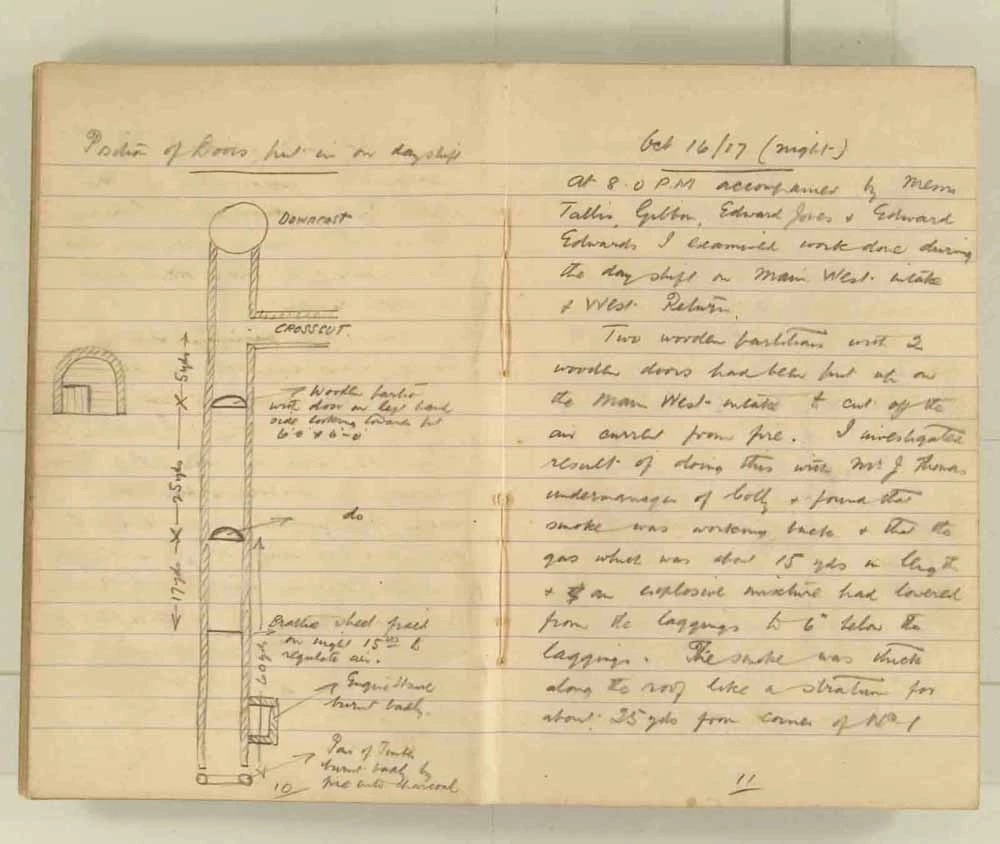 Position of Doors put in on day shift
DOWNCAST
CROSSCUT.
5yds
Wooden partit
with door on left hand
side looking towards pit
6'-0" x 6'-0"
25yds
do
17yds
Brattice sheet fixed
on night 15th to
regulate air.
60 yds
Engine House
burnt badly.
Pair of Timber
burnt badly by
fire into charcoal
10
Oct 16/17 (night)
At 8.0 P.M accompanied by Messrs
Tallis, Gibbon, Edward Jones & Edward
Edwards I examined work done during
the day shift on Main West intake
& West Return.
Two wooden partitions with 2
wooden doors had been put up on
the Main West intake to cut off the
air current from fire. I investigated
result of doing this with Mr J Thomas
undermanager of Colly & found that
smoke was working back & that the
gas which was about 15 yds in length
& an explosive mixture had lowered
from the laggings to 6" below the
laggings. The smoke was thick
along the roof like a stratum for
about 25 yds from corner of No 1
11